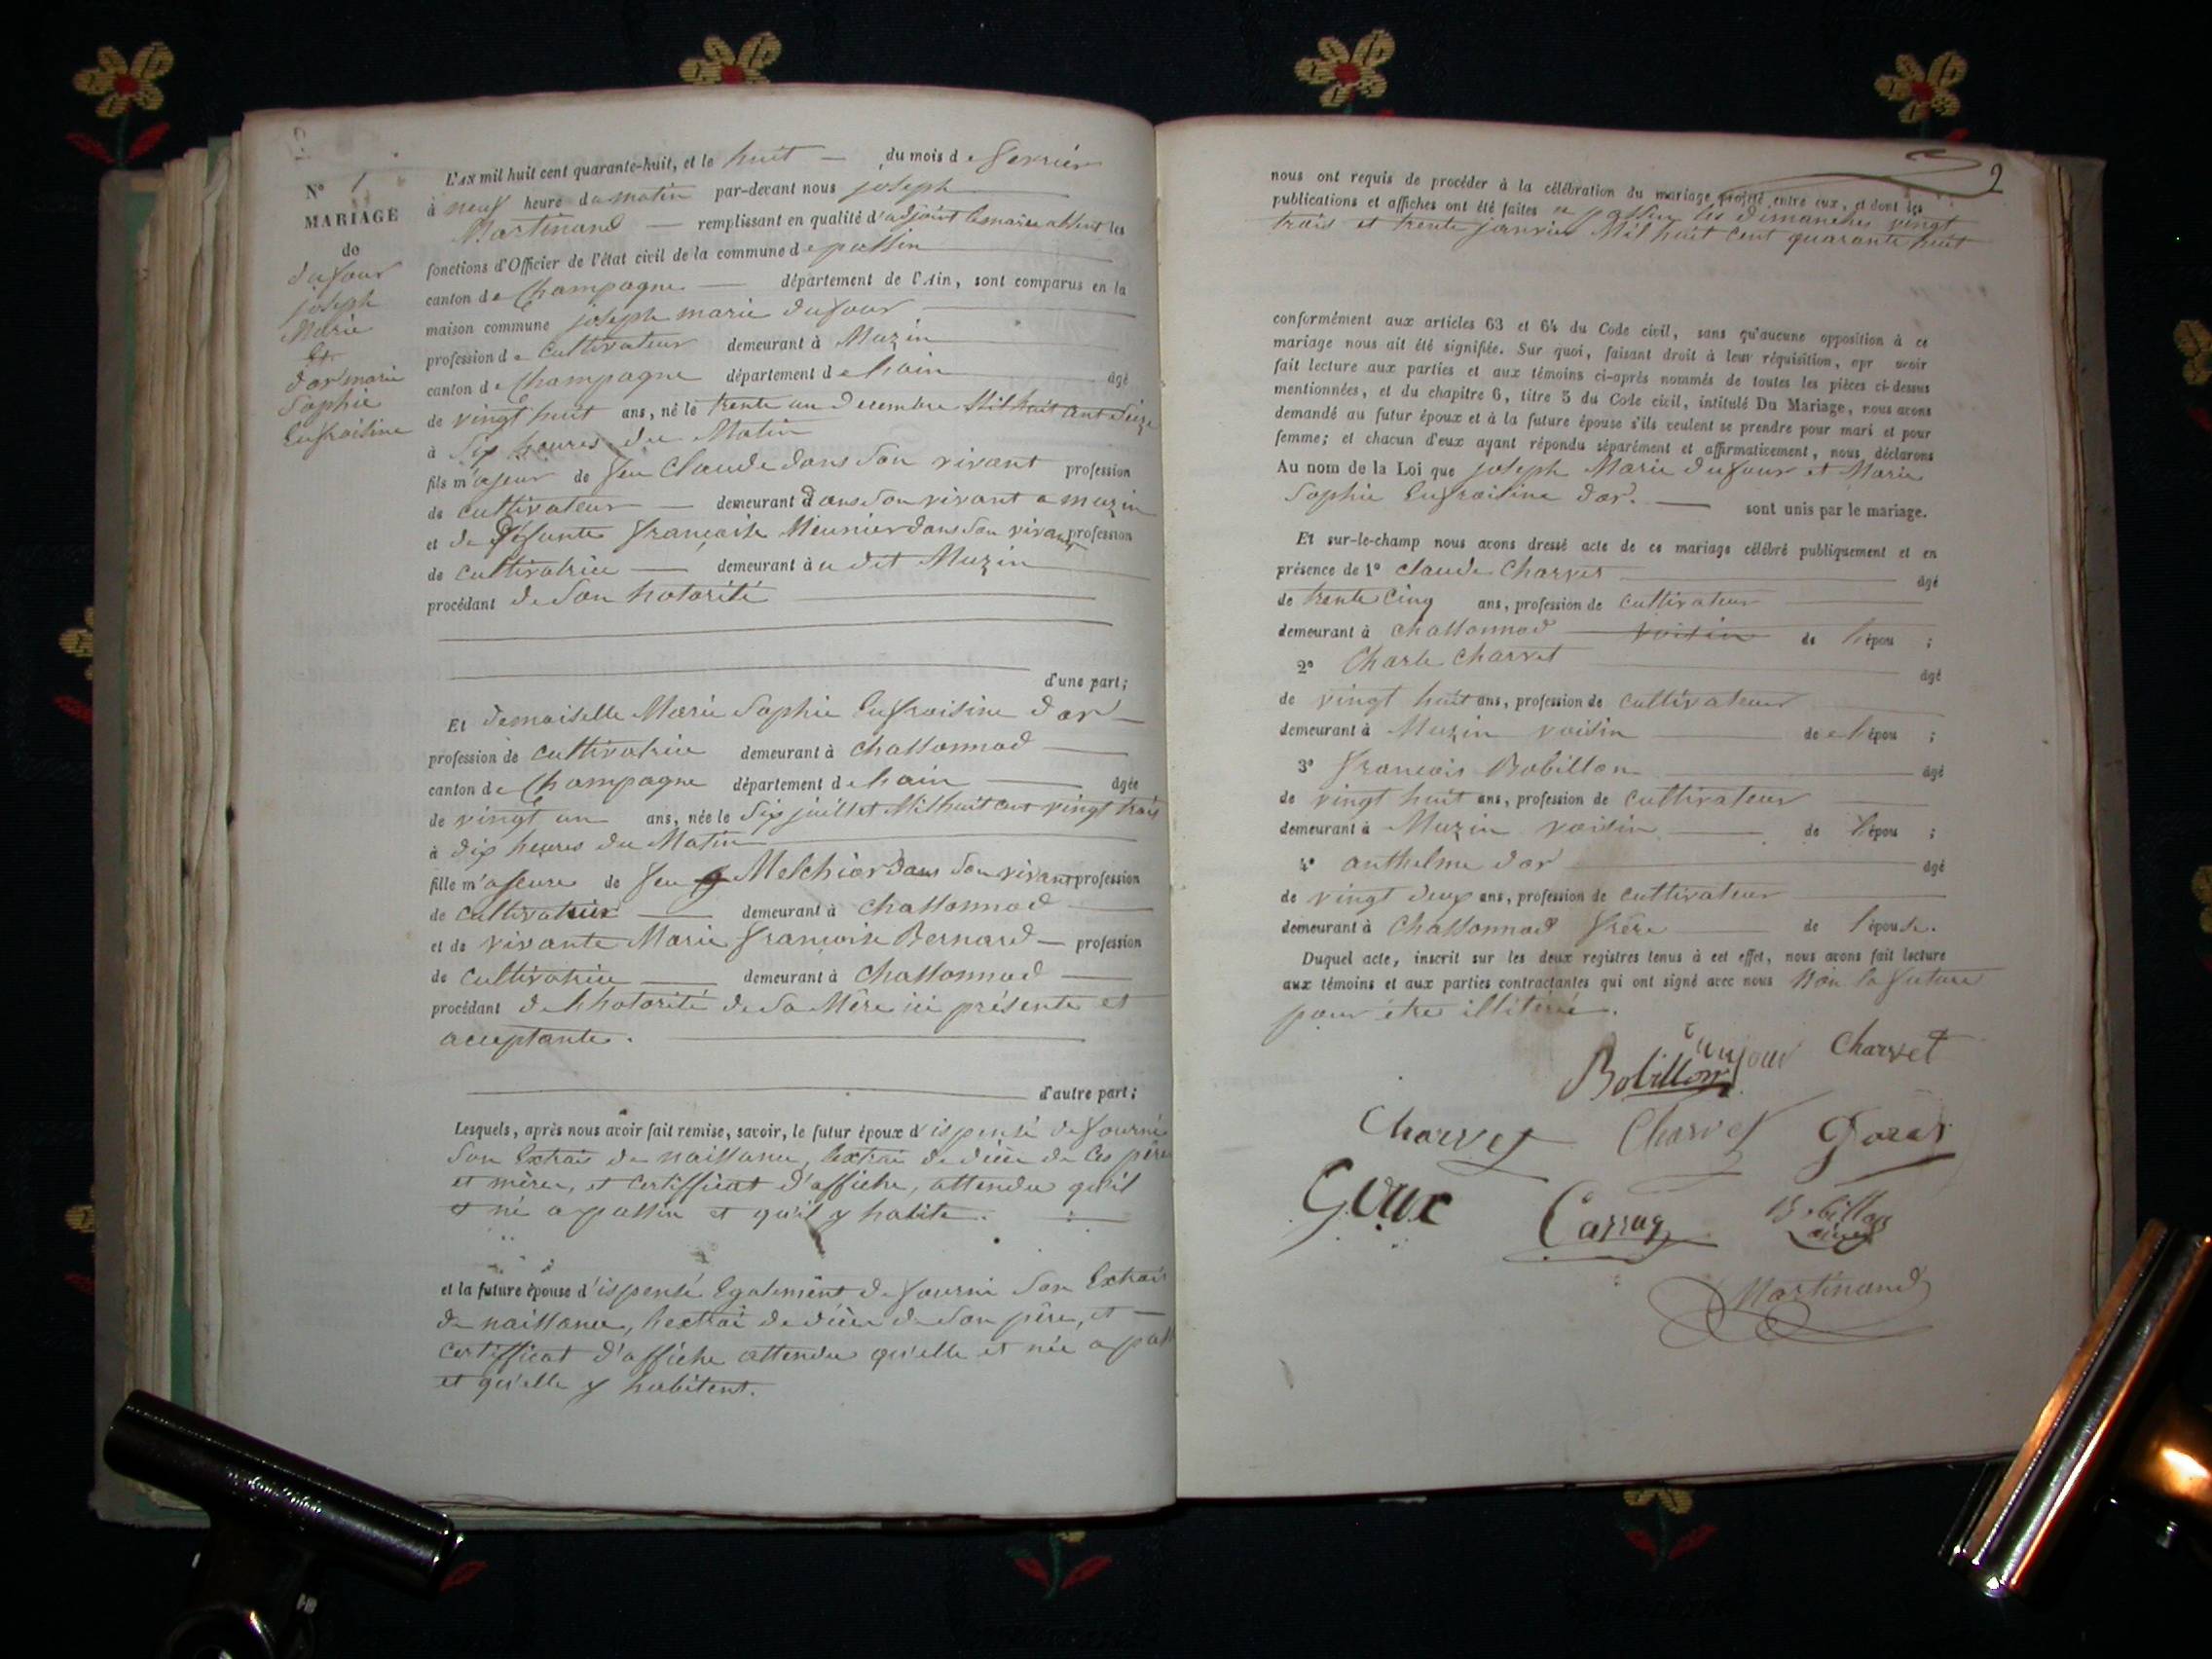 N° 1
MARIAGE
de
dufour
joseph
Marie
Et
dor marie
Sophie
Eufroisine
L'AN mil huit cent quarante-huit, et le huit du mois de fevrier
à neuf heure du matin par-devant nous joseph
Martinand remplissant en qualité d'adjoint le maire absent les
fonctions d'Officier de l'état civil de la commune de passin
canton de Champagne département de l'Ain, sont comparus en la
maison commune joseph marie dufour
profession de Cultivateur demeurant à Muzin
canton de Champagne département de lain âgé
de vingt huit ans, né le trente un decembre Mil huit cent dieze
à Six heures du Matin
fils m'ajeur de feu Claude dans Son vivant profession
de cultivateur demeurant dans Son vivant a muzin
et de défunte françoise Meunier dans Son vivant profession
de cultivatrice demeurant à u dit Muzin
procédant de Son hotorité
d'une part;
Et demoiselle Marie Sophie Eufroisine dor
profession de cultivatrice demeurant à Chassonnod
canton de Champagne département de lain âgée
de vingt un ans, née le Six juillet Mil huit cent vingt trois
à dix heures du Matin
fille m'ajeure de feu Melchior dans Son vivant profession
de cultivateur demeurant à Chassonnod
et de vivante Marie françoise Bernard profession
de cultivatrice demeurant à Chassonnod
procédant de lhotorité de Sa Mère ici présente et
acceptante.
d'autre part;
Lesquels, après nous avoir fait remise, savoir, le futur époux d'ispensé de fourni
Son Extrais de naissance, lextrai de décès de Ces père
et mère, et certifficat d'affiche, attendu qu'il
et né a passin et qu'il y habite.
et la future épouse d'ispensé Egalement de fourni Son Extrais
de naissance, l'extrai de décès de Son père, et
certifficat d'affiche attendu qu'elle et née a pass
et qu'elle y habitent.
2
nous ont requis de procéder à la célébration du mariage projeté entre eux, et dont les
publications et affiches ont été faites a passin les dimanches vingt
trois et trente janvier Mil huit cent quarante huit
conformément aux articles 63 et 64 du Code civil, sans qu'aucune opposition à ce
mariage nous ait été signifiée. Sur quoi, faisant droit à leur réquisition, apr avoir
fait lecture aux parties et aux témoins ci-après nommés de toutes les pièces ci-dessus
mentionnées, et du chapitre 6, titre 5 du Code civil, intitulé Du Mariage, nous avons
demandé au futur époux et à la future épouse s'ils veulent se prendre pour mari et pour
femme; et chacun d'eux ayant répondu séparément et affirmativement, nous déclarons
Au nom de la Loi que joseph Marie dufour et Marie
Sophie Eufroisine dor. sont unis par le mariage.
Et sur-le-champ nous avons dressé acte de ce mariage célébré publiquement et en
présence de 1° Claude Charvet âgé
de trente Cinq ans, profession de cultivateur
demeurant à Chassonnod voisin de l'épou ;
2° Charle Charvet âgé
de vingt huit ans, profession de cultivateur
demeurant à Muzin voisin de l'épou ;
3° françois Bobillon âgé
de vingt huit ans, profession de cultivateur
demeurant à Muzin voisin de l'épou ;
4° anthelme dor âgé
de vingt deux ans, profession de cultivateur
demeurant à Chassonnod frère de l'épouse.
Duquel acte, inscrit sur les deux registres tenus à cet effet, nous avons fait lecture
aux témoins et aux parties contractantes qui ont signé avec nous Non la future
pour être illitéré.
Charvet
Bobillon
Charvet Charvet
Goux Bobillon
Martinand